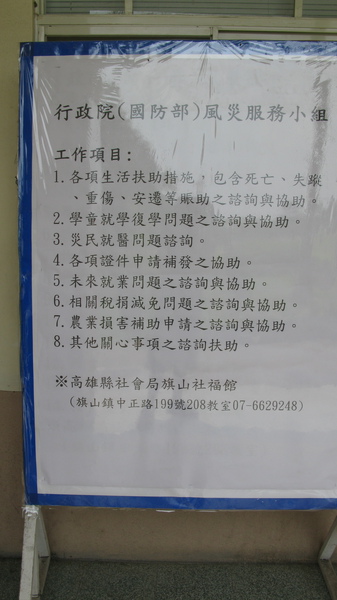 行政院(國防部)風災服務小組
工作項目:
1.各項生活扶助措施,包含死亡、失蹤
、重傷、安遷等賑助之諮詢與協助。
2.學童就學復學問題之諮詢與協助。
3.災民就醫問題諮詢。
4.各項證件申請補發之協助。
5.未來就業問題之諮詢與協助。
6.相關稅捐減免問題之諮詢與協助。
7.農業損害補助申請之諮詢與協助。
8.其他關心事項之諮詢扶助。
※高雄縣社會局旗山社福館
(旗山鎮中正路199號208教室07-6629248)